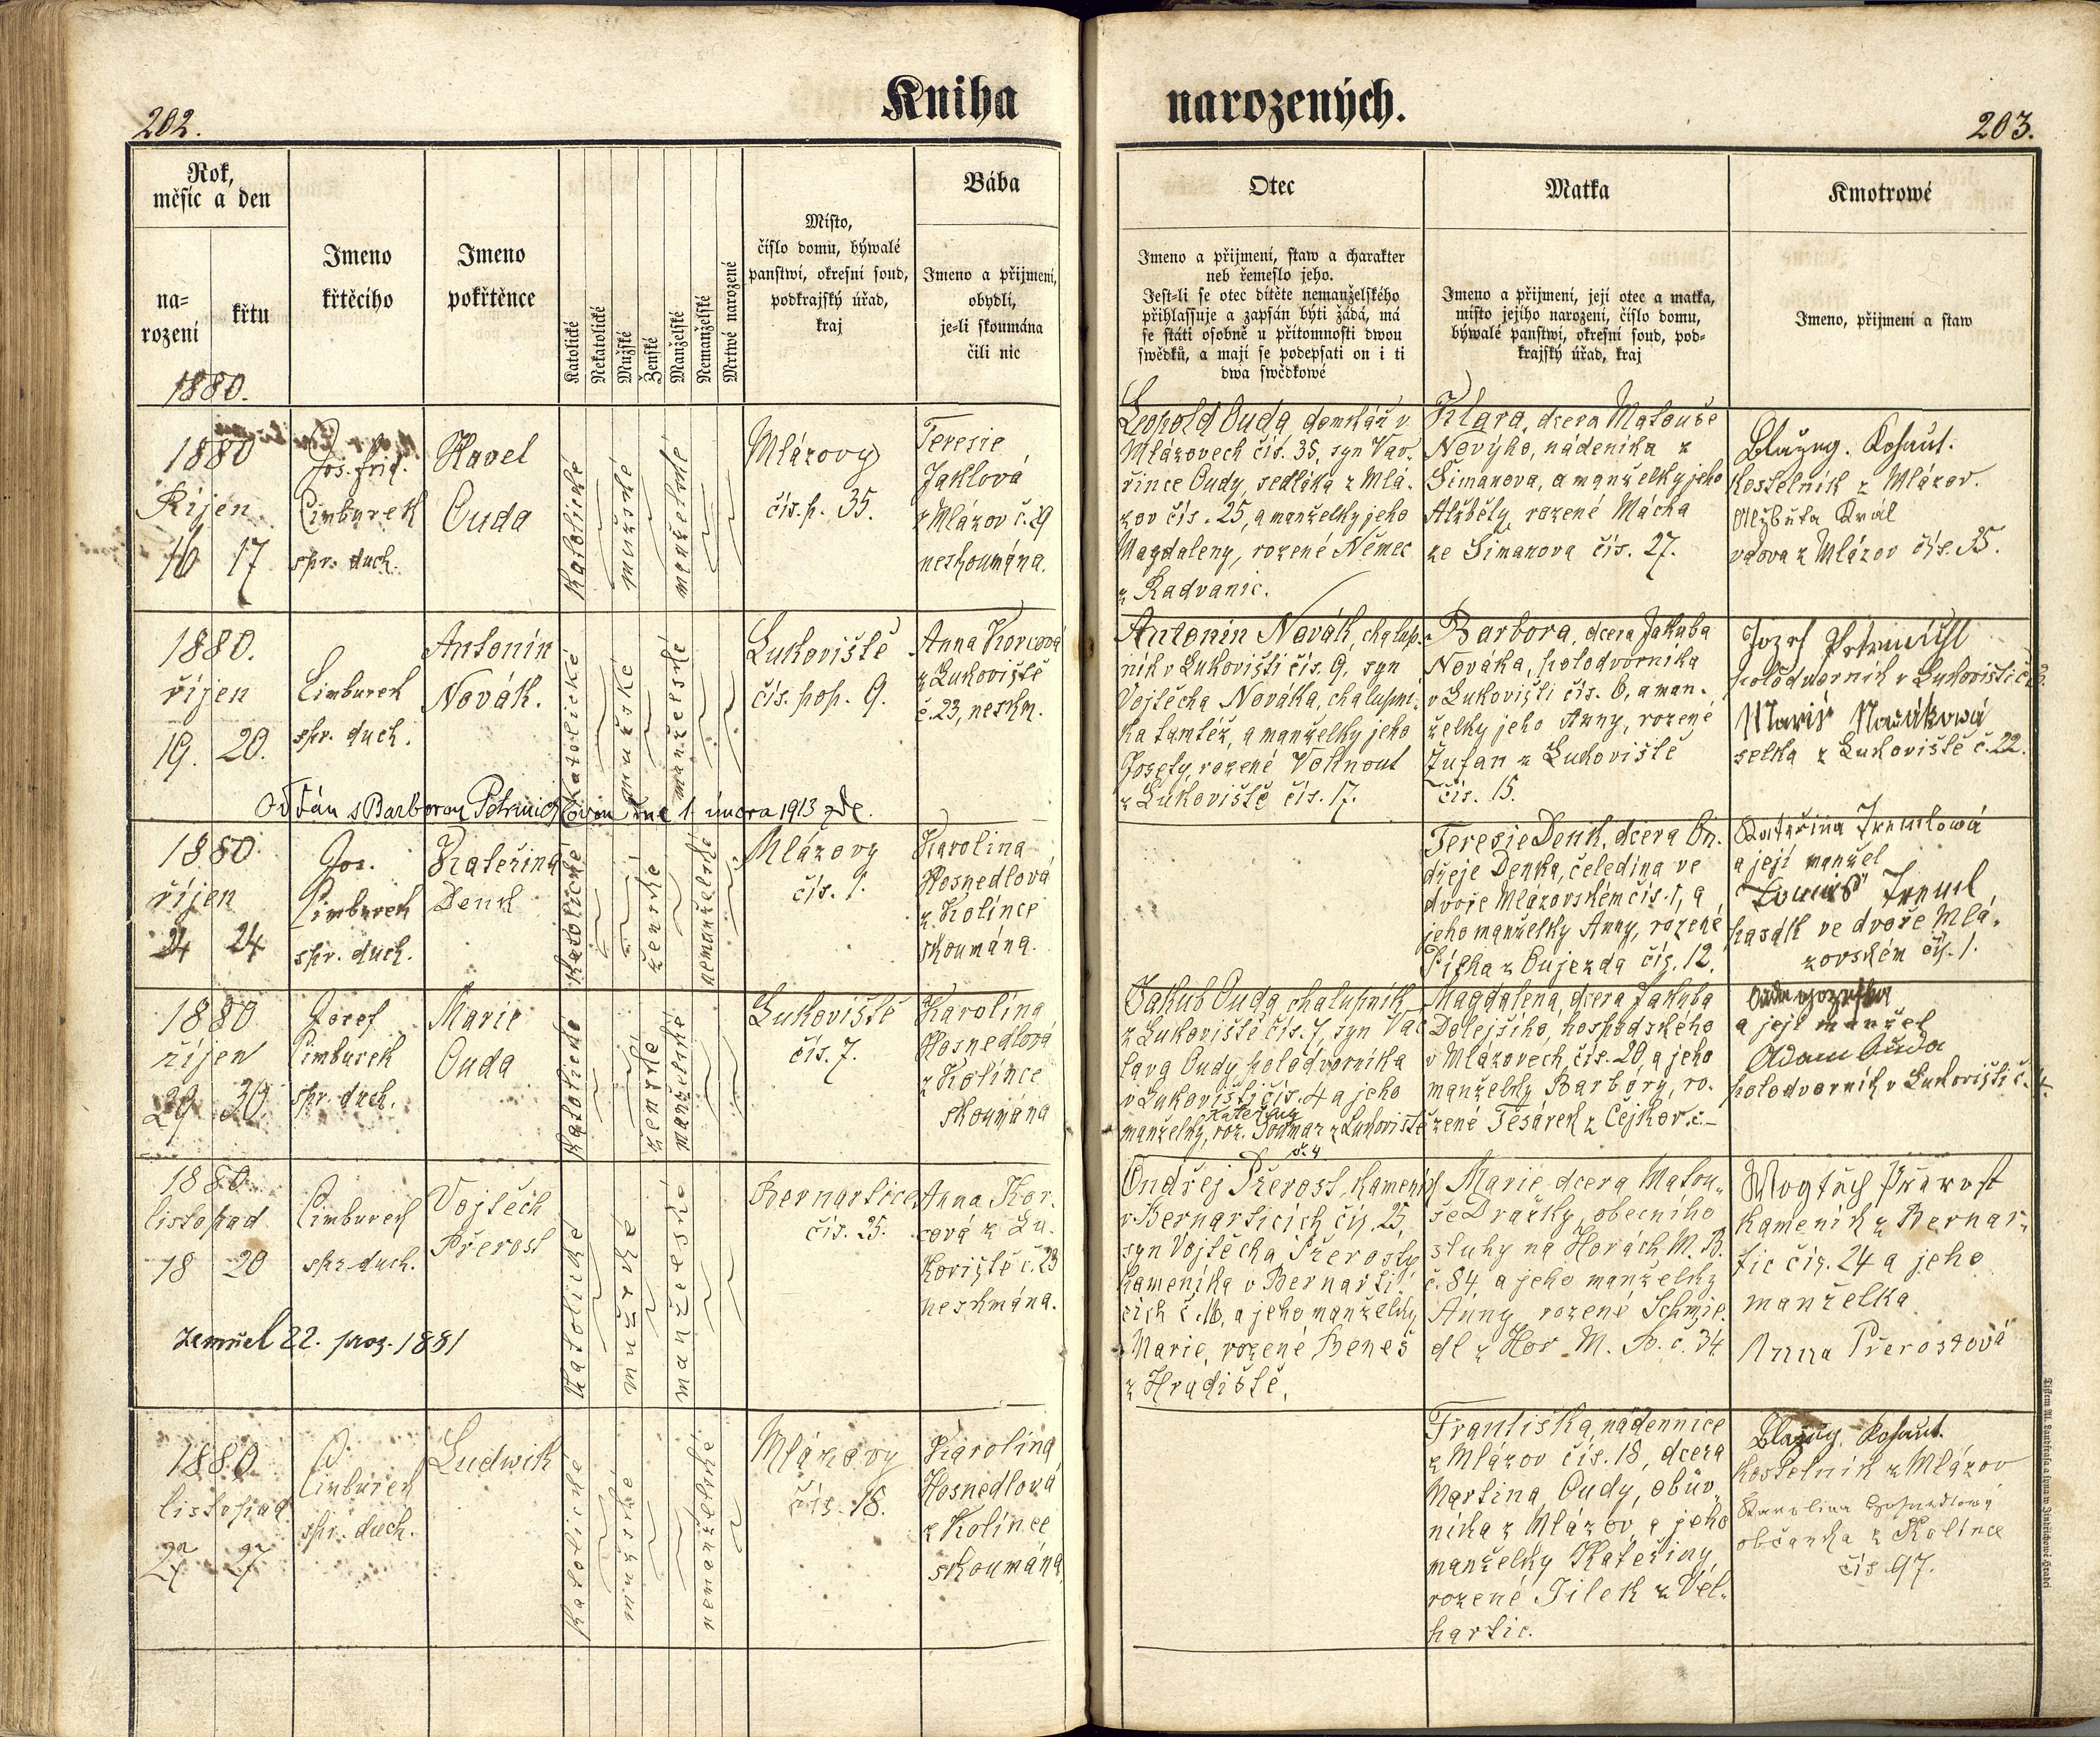 202.
Kniha
narozených.
203.
Rok,
měsíc a den
na=
rození
křtu
1880.
Imeno
křtěcího
Imeno
pokřtěnce
Katolické
Nekatolické
Mužské
Ženské
Manželské
Nemanželské
Mrtwě narozené
Místo,
číslo domu, býwalé
panstwí, okresní soud,
podkrajský úřad,
kraj
Bába
Imeno a přijmení,
obydlí,
je-li skoumána
čili nic
Otec
Imeno a přijmení, staw a charakter
neb řemeslo jeho.
Jest-li se otec dítěte nemanželského
přihlassuje a zapsán býti žádá, má
se státi osobně u přítomnosti dwou
swědků, a mají se podepsati on i ti
dwa swědkowé
Matka
Imeno a přijmení, její otec a matka,
místo jejího narození, číslo domu,
býwalé panstwí, okresní soud, pod=
krajský úřad, kraj
Kmotrowé
Imeno, přijmení a staw
1880
Říjen
16 17
Jos. frid.
Cimburek
spr. duch.
Havel
Ouda
katolické
mužské
manželské
Mlázovy
čís. p. 35.
Teresie
Jaklová
z Mlázov č. 29
neskoumána.
Leopold Ouda domkář v
Mlázovech čís. 35, syn Vav-
řince Oudy, sedláka z Mlá-
zov čís. 25, a manželky jeho
Magdaleny, rozené Němec
z Radvanic.
Klara, dcera Matouše
Nového, nádeníka z
Šimanova, a manželky jeho
Alžběty, rozené Mácha
ze Šimanova čís. 27.
Blažej. Kohout.
kostelník z Mlázov.
Alžběta Král
vdova z Mlázov čís. 35.
1880.
říjen
19. 20.
Cimburek
spr. duch.
Antonín
Novák.
katolické
mužské
manželské
Lukoviště
čís. pop. 9.
Anna Korcová
z Lukoviště
č. 23, neskm.
Antonín Novák, chalup-
ník v Lukovišti čís. 9, syn
Vojtěcha Nováka, chalupní-
ka tamtéž, a manželky jeho
Josefy, rozené Voknout
z Lukoviště čís. 17.
Barbora, dcera Jakuba
Nováka, polodvorníka
v Lukovišti čís. 6, a man-
želky jeho Anny, rozené
Žufan z Lukoviště
čís. 15.
Jozef
polodvorník v Lukovišti č.
Marie Nováková
selka z Lukoviště č. 22.
Oddán s Barborou dne 1. února 1913 zde.
1880
říjen
24 24
Jos.
Cimburek
spr. duch.
Kateřina
Denk
katolické
ženské
nemanželské
Mlázovy
čís. 1.
Karolina
Hosnedlová
z Kolince
skoumána.
Teresie Denk, dcera On-
dřeje Denka, čeledína ve
dvoře Mlázovském čís. 1, a
jeho manželky Anny, rozené
z Oujezda čís. 12.
Kateřina Tremlová
a její manžel
Tomáš Treml
pasák ve dvoře Mlá-
zovském čís. 1.
1880
říjen
29 30
Josef
Cimburek
spr. duch.
Marie
Ouda
katolické
ženské
manželské
Lukoviště
čís. 7.
Karolina
Hosnedlová
z Kolince
skoumána
Jakub Ouda, chalupník
z Lukoviště čís. 7, syn Vác
lava Oudy, polodvorníka
v Lukovišti čís. 4 a jeho
Kateřiny
manželky, roz. z Lukoviště
č. 4
Magdalena, dcera Jakuba
Dolejšího, hospodského
v Mlázovech, čís. 20, a jeho
manželky Barbory, ro-
zené Tesárek z Čejkov č. –
a její manžel
Adam Ouda
polodvorník v Lukovišti č. 4.
1880
listopad
18 20
Cimburek
spr. duch.
Vojtěch
Přerost
katolické
mužské
manželské
Bernartice
čís. 25.
Anna Kor-
cová z Lu-
koviště č. 23
neskmána.
zemřel 22. pros. 1881
Ondřej Přerost, kameník
v Bernarticích čís. 25,
syn Vojtěcha Přerosty,
kameníka v Bernarti-
cích č. 16, a jeho manželky
Marie, rozené Beneš
z Hradiště.
Marie dcera Matou-
še Dračky, obecního
sluhy na Horách M. B.
č. 84, a jeho manželky
Anny rozené Schmie-
dl z Hor M. B. č. 34.
Wogtěch Přerost
kameník z Bernar-
tic čís. 24 a jeho
manželka
Anna Přerostová
1880
listopad
27 27
J.
Cimburek
spr. duch.
Ludwik
katolické
mužské
nemanželské
Mlázovy
čís. 18.
Karolina
Hosnedlová
z Kolince
skoumána
Františka, nádennice
z Mlázov čís. 18, dcera
Martina Oudy, obuv-
níka z Mlázov, a jeho
manželky Kateřiny,
rozené Jílek z Vel-
hartic.
Blažej. Kohout.
kostelník z Mlázov
Karolina Hosnedlová
občanka z Kolince
čís. 97.